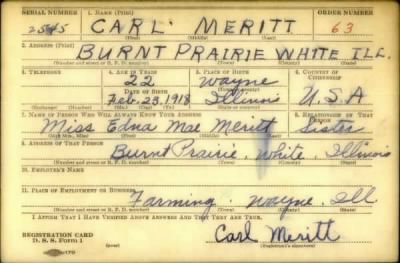 SERIAL NUMBER 1. NAME (Print) ORDER NUMBER
2545 CARL MERITT 63
(First) (Middle) (Last)
2. ADDRESS (Print)
BURNT PRAIRIE WHITE ILL.
(Number and street or R. F. D. number) (Town) (County) (State)
3. TELEPHONE 4. AGE IN YEARS 5. PLACE OF BIRTH 6. COUNTRY OF CITIZENSHIP
22 Wayne
DATE OF BIRTH (Town or county)
Feb. 23, 1918 Illinois U.S.A
(Exchange) (Number) (Mo.) (Day) (Yr.) (State or country)
7. NAME OF PERSON WHO WILL ALWAYS KNOW YOUR ADDRESS 8. RELATIONSHIP OF THAT PERSON
Miss Edna Mae Meritt Sister
(Mr., Mrs., Miss) (First) (Middle) (Last)
9. ADDRESS OF THAT PERSON
Burnt Prairie, White, Illinois
(Number and street or R. F. D. number) (Town) (County) (State)
10. EMPLOYER'S NAME
11. PLACE OF EMPLOYMENT OR BUSINESS
Farming, Wayne, Ill
(Number and street or R. F. D. number) (Town) (County) (State)
I AFFIRM THAT I HAVE VERIFIED ABOVE ANSWERS AND THAT THEY ARE TRUE.
REGISTRATION CARD
D. S. S. FORM 1 (over) Carl Meritt
(Registrant's signature)